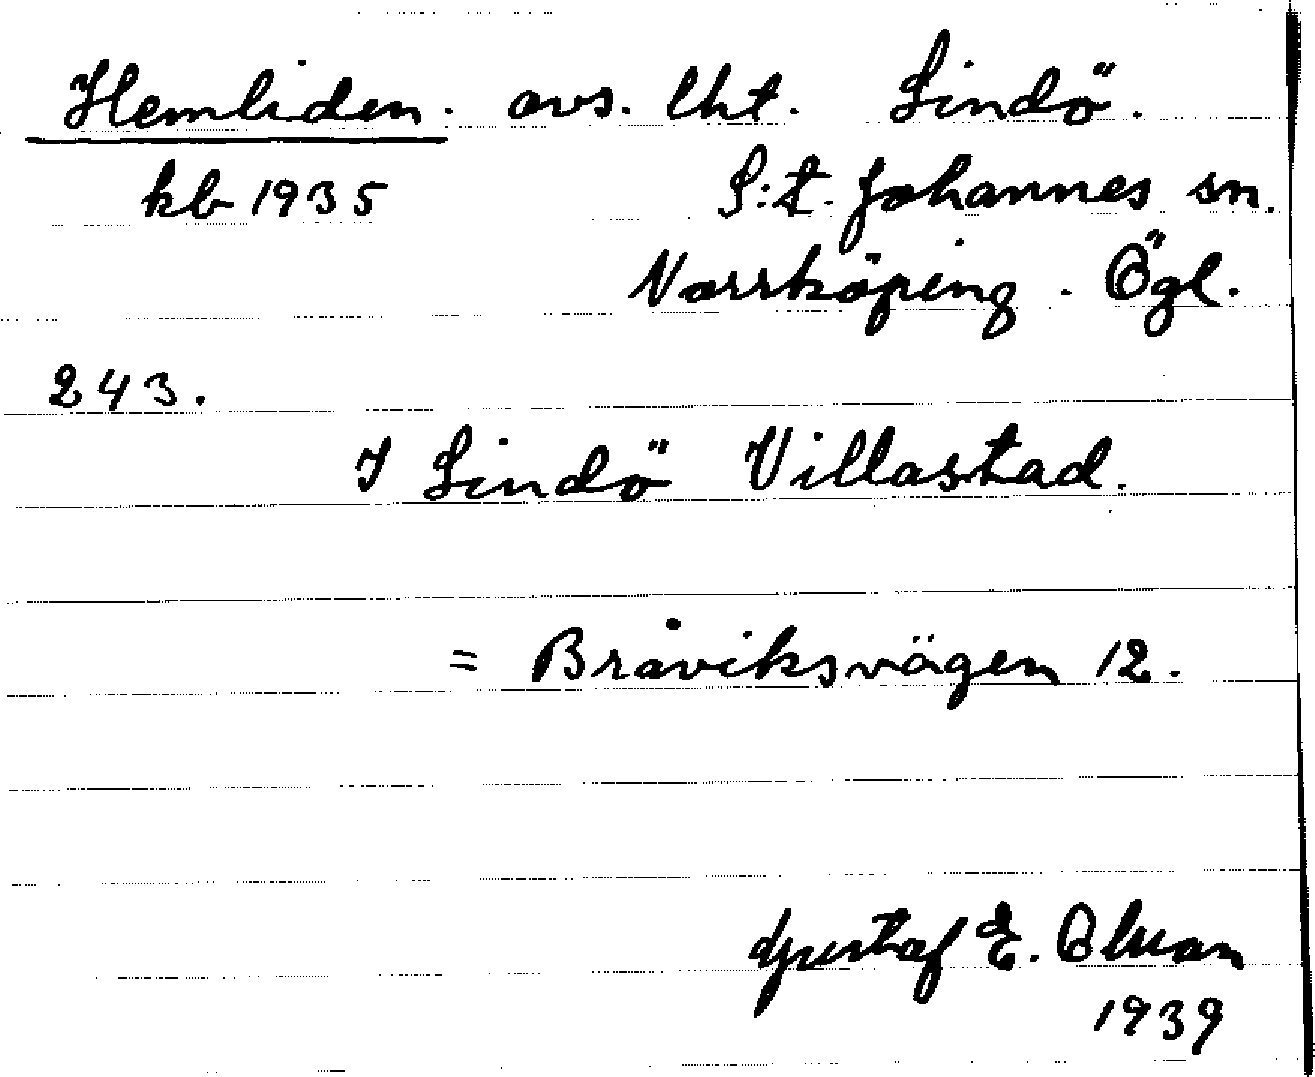 Hemliden. avs. lht. Lindö.
kb 1935 S:t. Johannes sn.
Norrköping. Ögl.
243.
I Lindö Villastad.
= Bråviksvägen 12.
Gustaf E.
1939